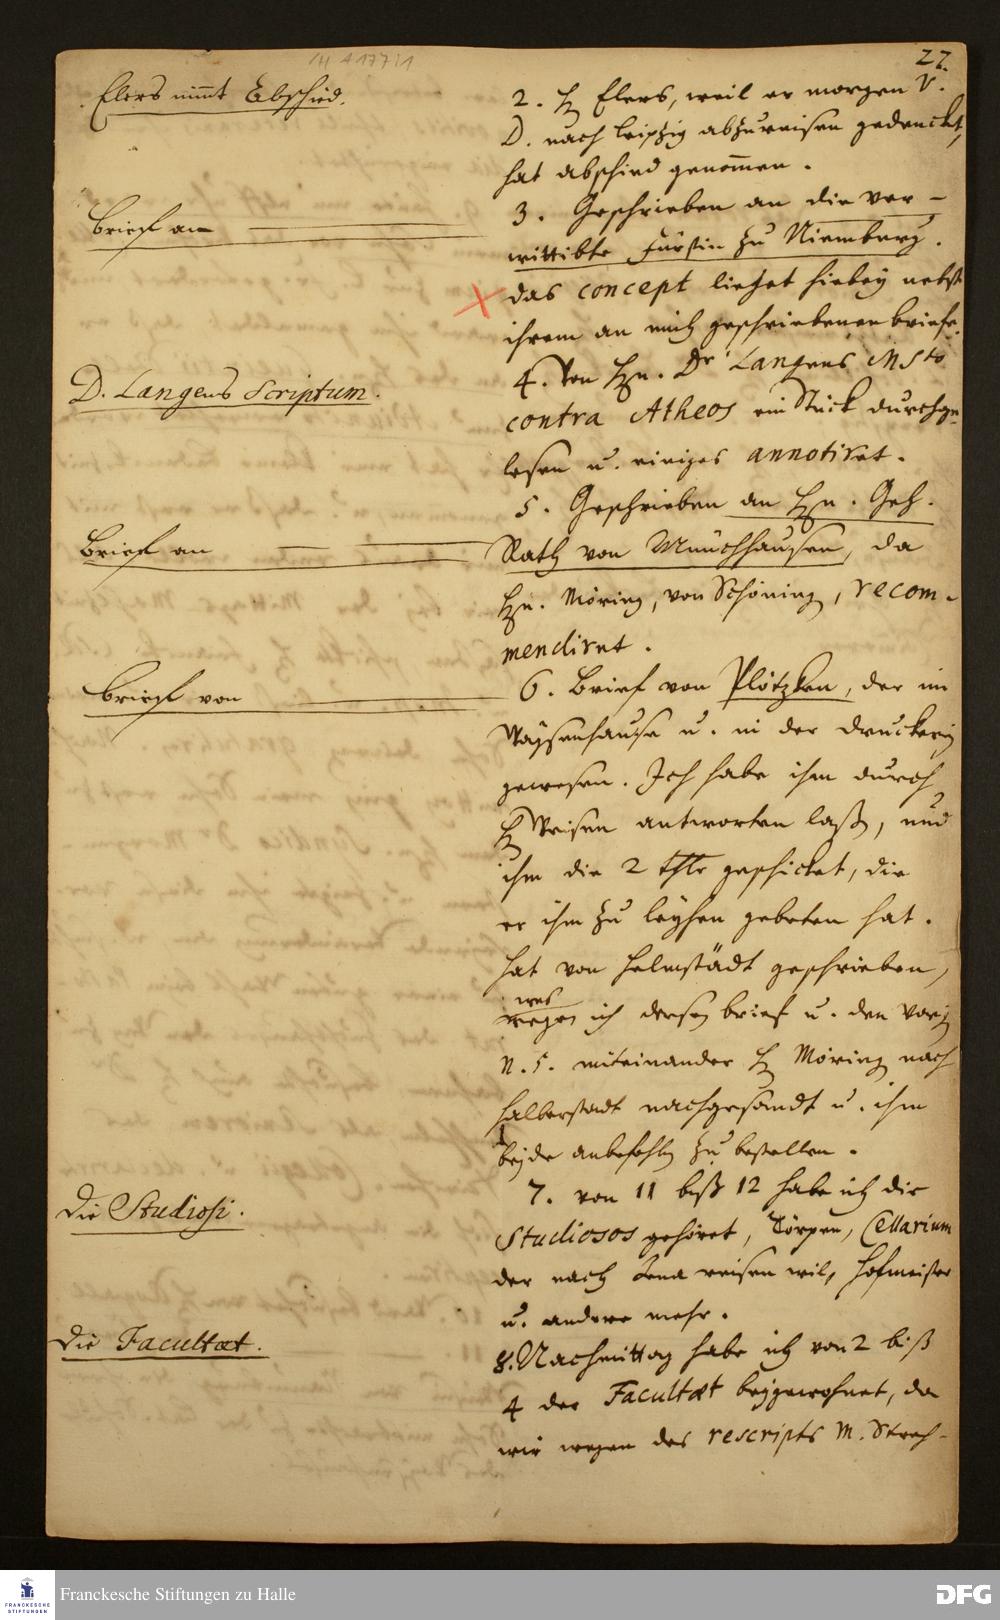 H A 177:1
27.
Elers nimt Abschied.
2. H Elers, weil er morgen V.
D. nach Leipzig abzureisen gedencket,
hat abschied genommen.
Brief an
3. Geschrieben an die ver-
wittibte Fürstin zu Niemburg.
das concept lieget hiebey nebst
ihrem an mich geschriebenen briefe.
D. Langens Scriptum.
4. Von Hn. Dr Langens MSto
contra Atheos ein Stück durchge-
lesen u. einiges annotiret.
Brief an
5. Geschrieben an Hn. Geh.
Rath von Münchhausen, da
Hn. Möring, von Schöning, recom-
mendiret.
Brief von
6. Brief von Plötzken, der im
Waysenhause u. in der druckerey
gewesen. Ich habe ihm durch
H Weisen antworten laßen, und
ihm die 2 thlr geschicket, die
er ihm zu leyhen gebeten hat.
hat von Helmstädt geschrieben,
wes
wegen ich diesen brief u. den vorig
N. 5. miteinander H Möring nach
Halberstadt nachgesandt u. ihm
beyde anbefohlen zu bestellen.
Die Studiosi.
7. von 11 biß 12 habe ich die
Studiosos gehöret, Törpen, Cellarium
der nach Jena reisen will, Hofmeister
u. andere mehr.
Die Facultæt.
8. Nachmittag habe ich von 2 biß
4 der Facultæt beygewohnet, da
wir wegen des rescripts M. Streh-
Franckesche Stiftungen zu Halle
FRANCKESCHE
STIFTUNGEN
DFG